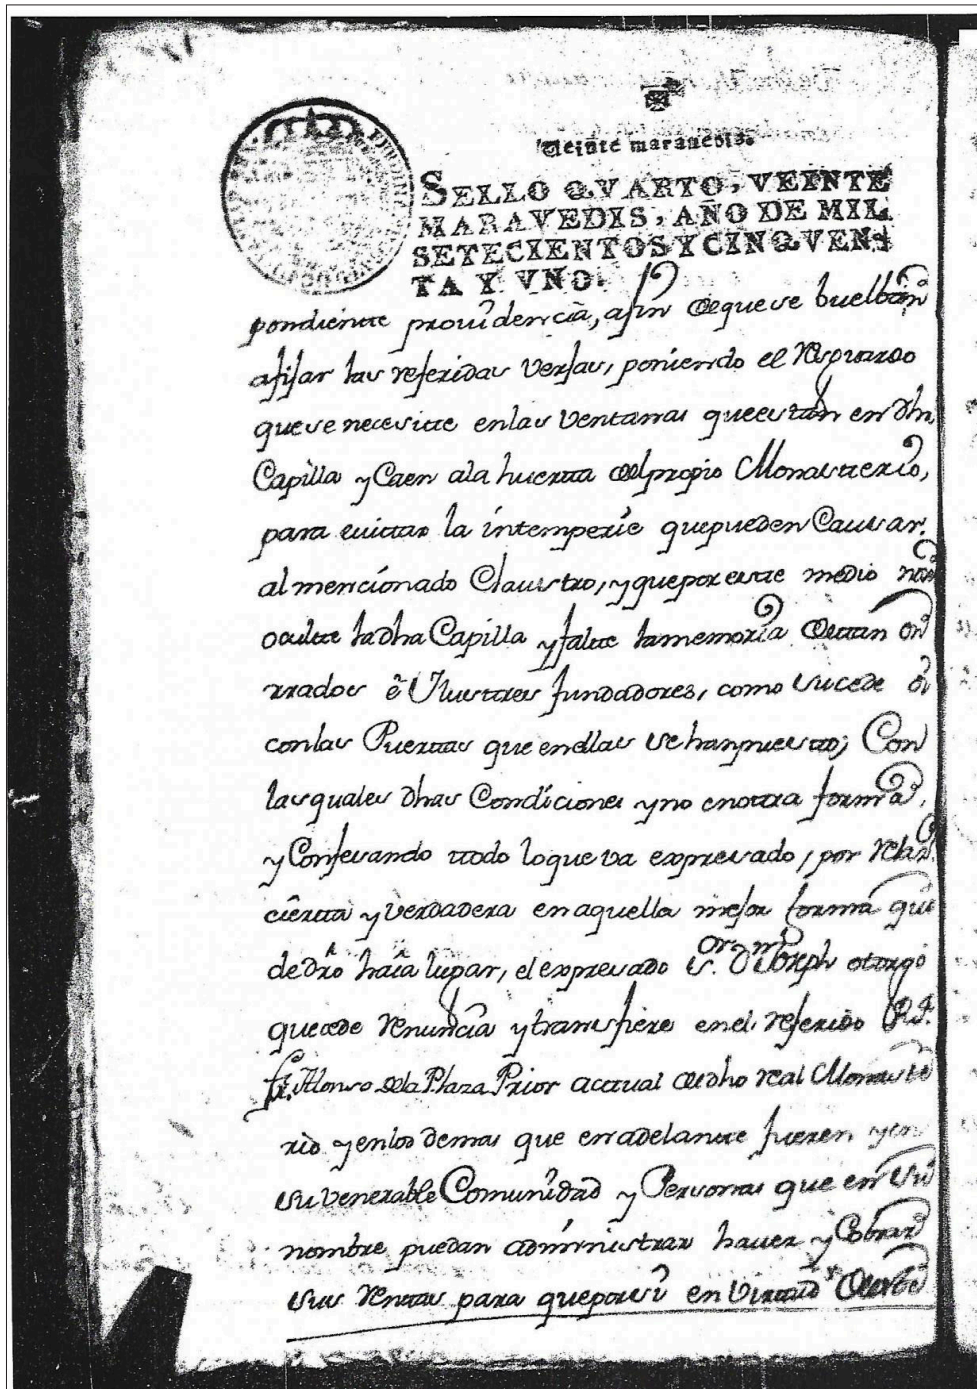 Veinte maravedis.
SELLO QVARTO, VEINTE
MARAVEDIS, AÑO DE MIL
SETECIENTOS Y CINQVEN-
TA Y VNO.
pondiente providencia, afin de que se buelban
afijar las referidas Verjas, poniendo el Resguardo
que se necesitte en las Ventanas que estan en dha
Capilla y Caen ala huertta del propio Monastterio,
para evittar la intemperie que pueden Causar
al mencionado Claustro, y que por estte medio no se
ocultte la dha Capilla y faltte la memoria de ttan on
rrados è Ylusttres fundadores, como sucede
con las Puerttas que en ellas se han puestto; Con
las quales dhas Condiciones y no en ottra forma,
y Confesando ttodo lo que va expresado, por Relaz.
ciertta y Verdadera en aquella mejor forma que
de dro haia lugar, el expresado S.or D.n Joseph otorgò
que cede Renuncia y transfiere en el referido R. P.
fr. Alonso de la Plaza Prior acttual de dho Real Monaste
rio y en los demas que en adelantte fueren y en
su venerable Comunidad y Personas que en su
nombre puedan administrar haver y Cobrar
sus Renttas para que por si en Virttud de esta